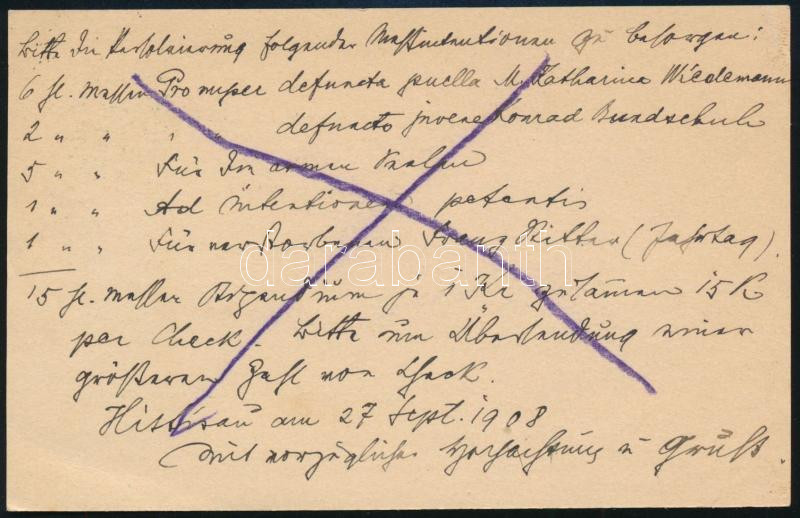 Bitte die Persolvierung folgender Meßintentionen zu besorgen:
6 hl. Messen Pro nuper defuncta puella M. Katharina Wiedemann
2 „ „ „ „ defuncto juvene Konrad Bundschuh
5 „ „ Für die armen Seelen
1 „ „ Ad intentionem petentis
1 „ „ Für verstorbenen Franz Ritter (Jahrtag).
15 hl. Messen Stipendium je 1 Kr zusamen 15 K
per Check. Bitte um Übersendung einer
größeren Zahl von Check.
Hittisau am 27 Sept. 1908
Mit vorzüglicher Hochachtung u Gruß.
darabanth